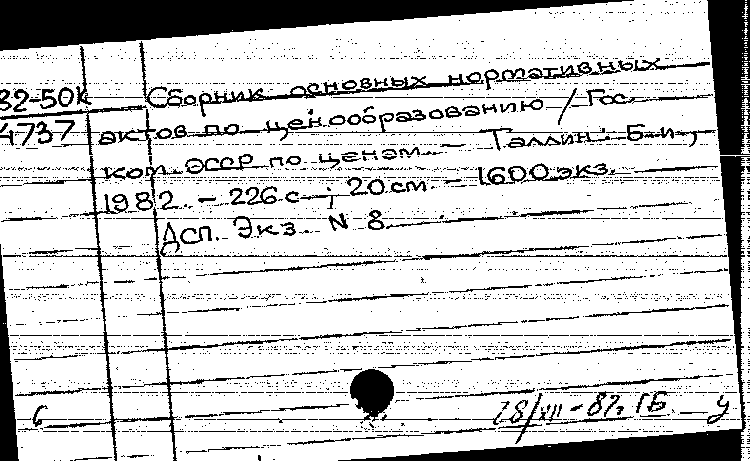 82-50к Сборник основных нормативных
4737 актов по ценообразованию / Гос.
ком. ЭССР по ценам. – Таллин: Б. и.,
1982. – 226 с.; 20 см. – 1600 экз.
Дсп. Экз. N 8
б 28/XII-87г. ГБ у